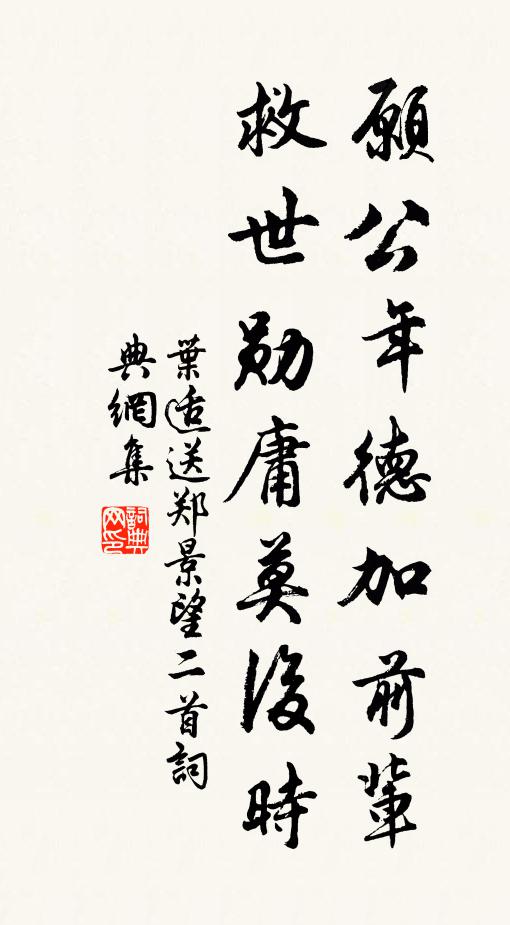 願公年德加前輩
救世勛庸莫後時
葉適送郑景望二首詞
典網集
詞典网印